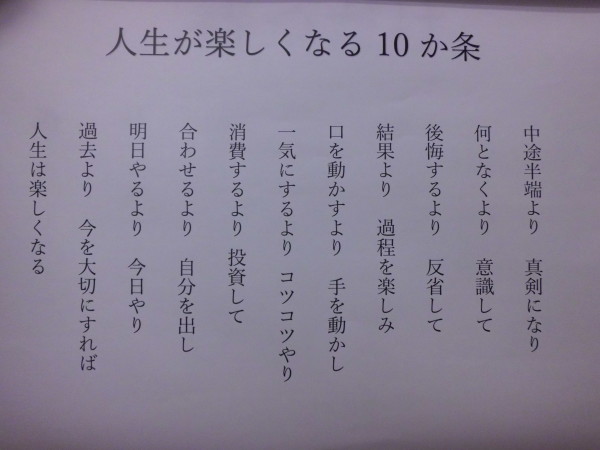 人生が楽しくなる 10 か条
中途半端より 真剣になり
何となくより 意識して
後悔するより 反省して
結果より 過程を楽しみ
口を動かすより 手を動かし
一気にするより コツコツやり
消費するより 投資して
合わせるより 自分を出し
明日やるより 今日やり
過去より 今を大切にすれば
人生は楽しくなる